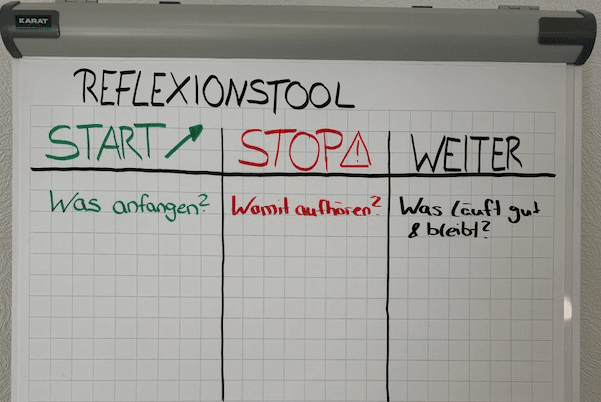 KARAT
REFLEXIONSTOOL
START
STOP
WEITER
Was anfangen?
Womit aufhören?
Was läuft gut
& bleibt?